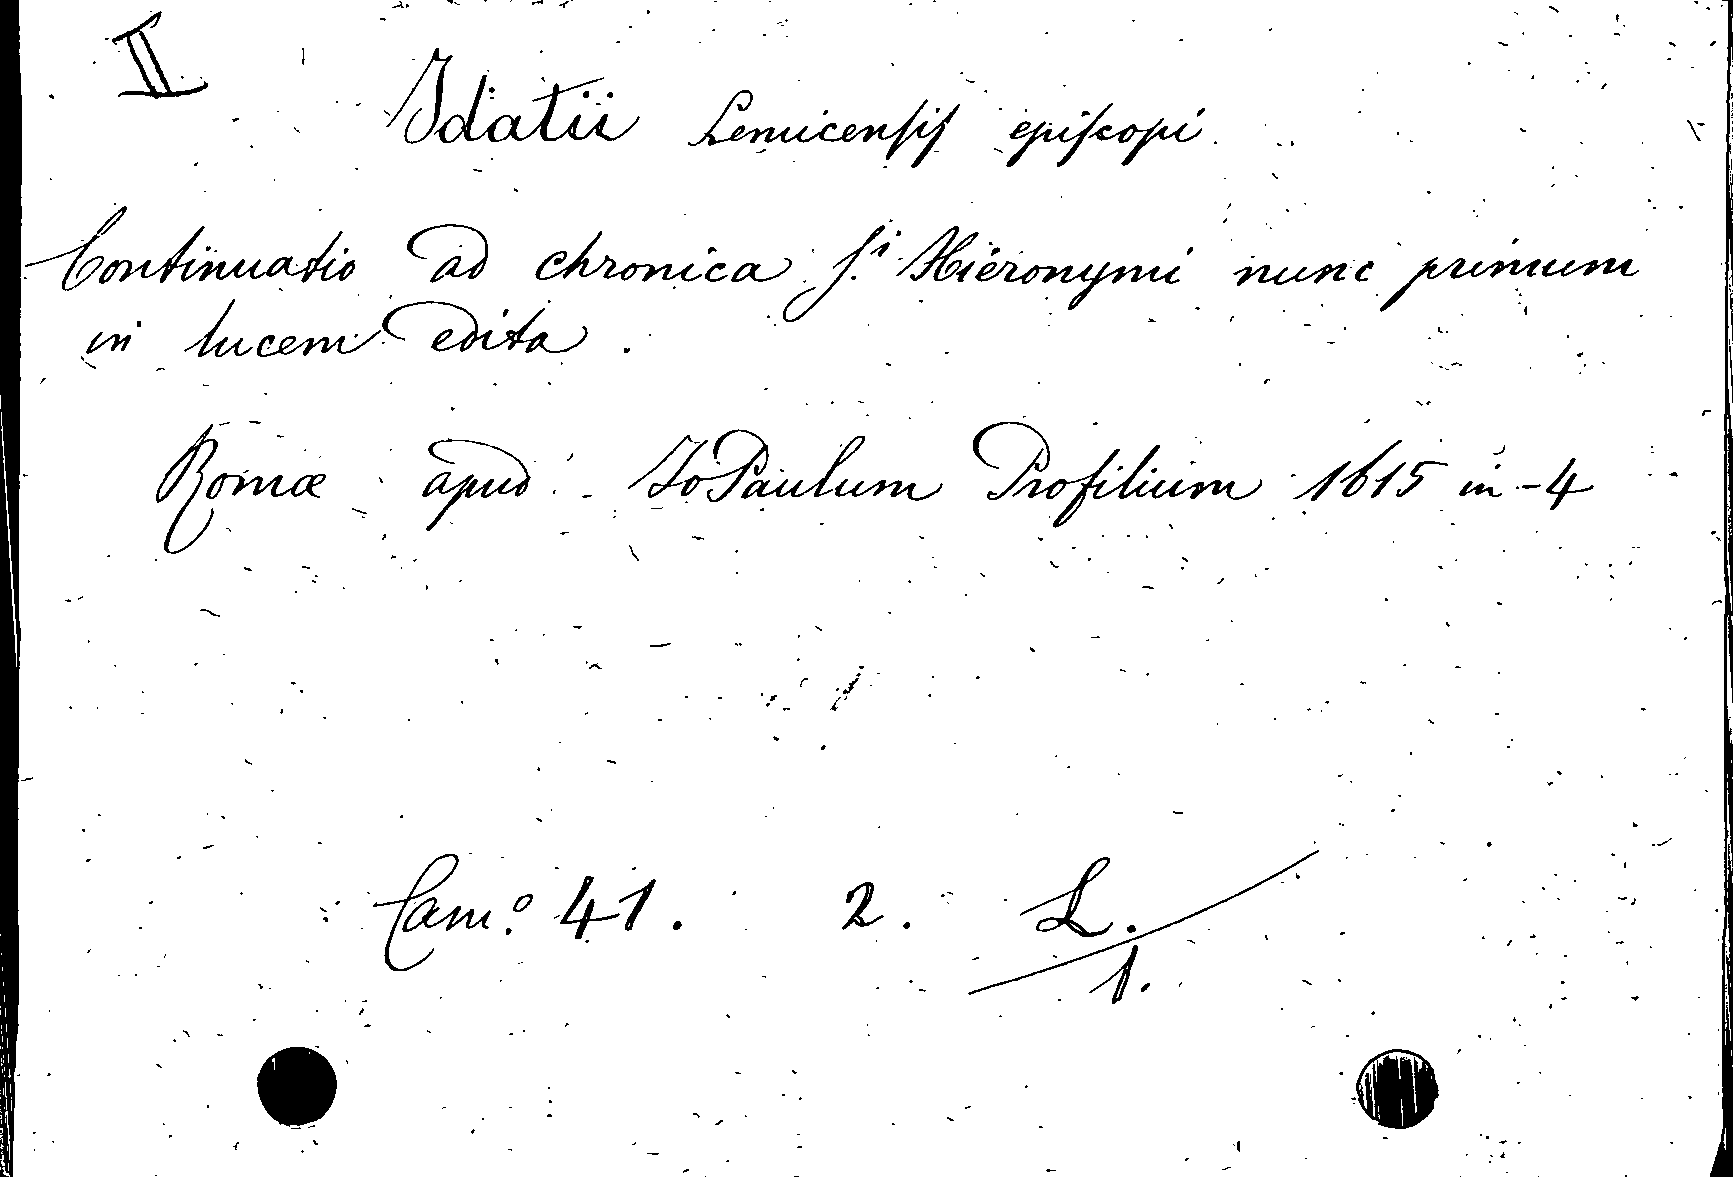 II
Idatii Lemicensis episcopi
Continuatio ad chronica S.i Hieronymi nunc primum
in lucem edita.
Romæ apud Jo Paulum Profilium 1615 in-4
Cam.o 41. 2. L.
1.